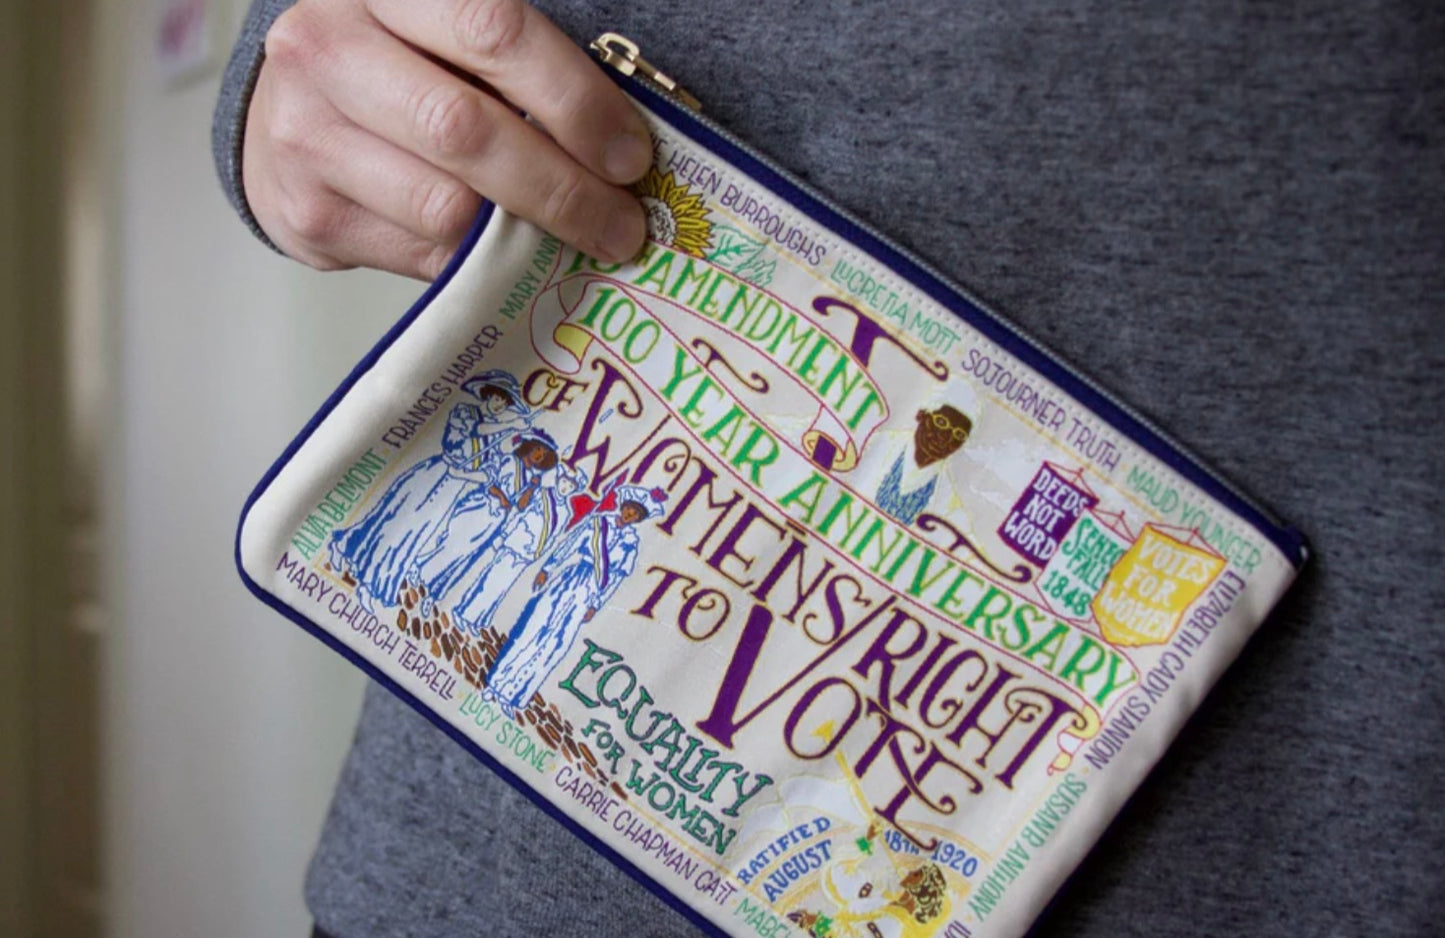 HELEN BURROUGHS
LUCRETIA MOTT
SOJOURNER TRUTH
MAUD YOUNGER
ELIZABETH CADY STANTON
SUSAN B ANTHONY
MARY ANN
FRANCES HARPER
ALVA BELMONT
MARY CHURCH TERRELL
LUCY STONE
CARRIE CHAPMAN CATT
AMENDMENT
100 YEAR ANNIVERSARY
OF WOMENS/RIGHT
TO VOTE
DEEDS
NOT
WORD
1848
VOTES
FOR
WOMEN
EQUALITY
FOR
WOMEN
RATIFIED
AUGUST 18TH 1920